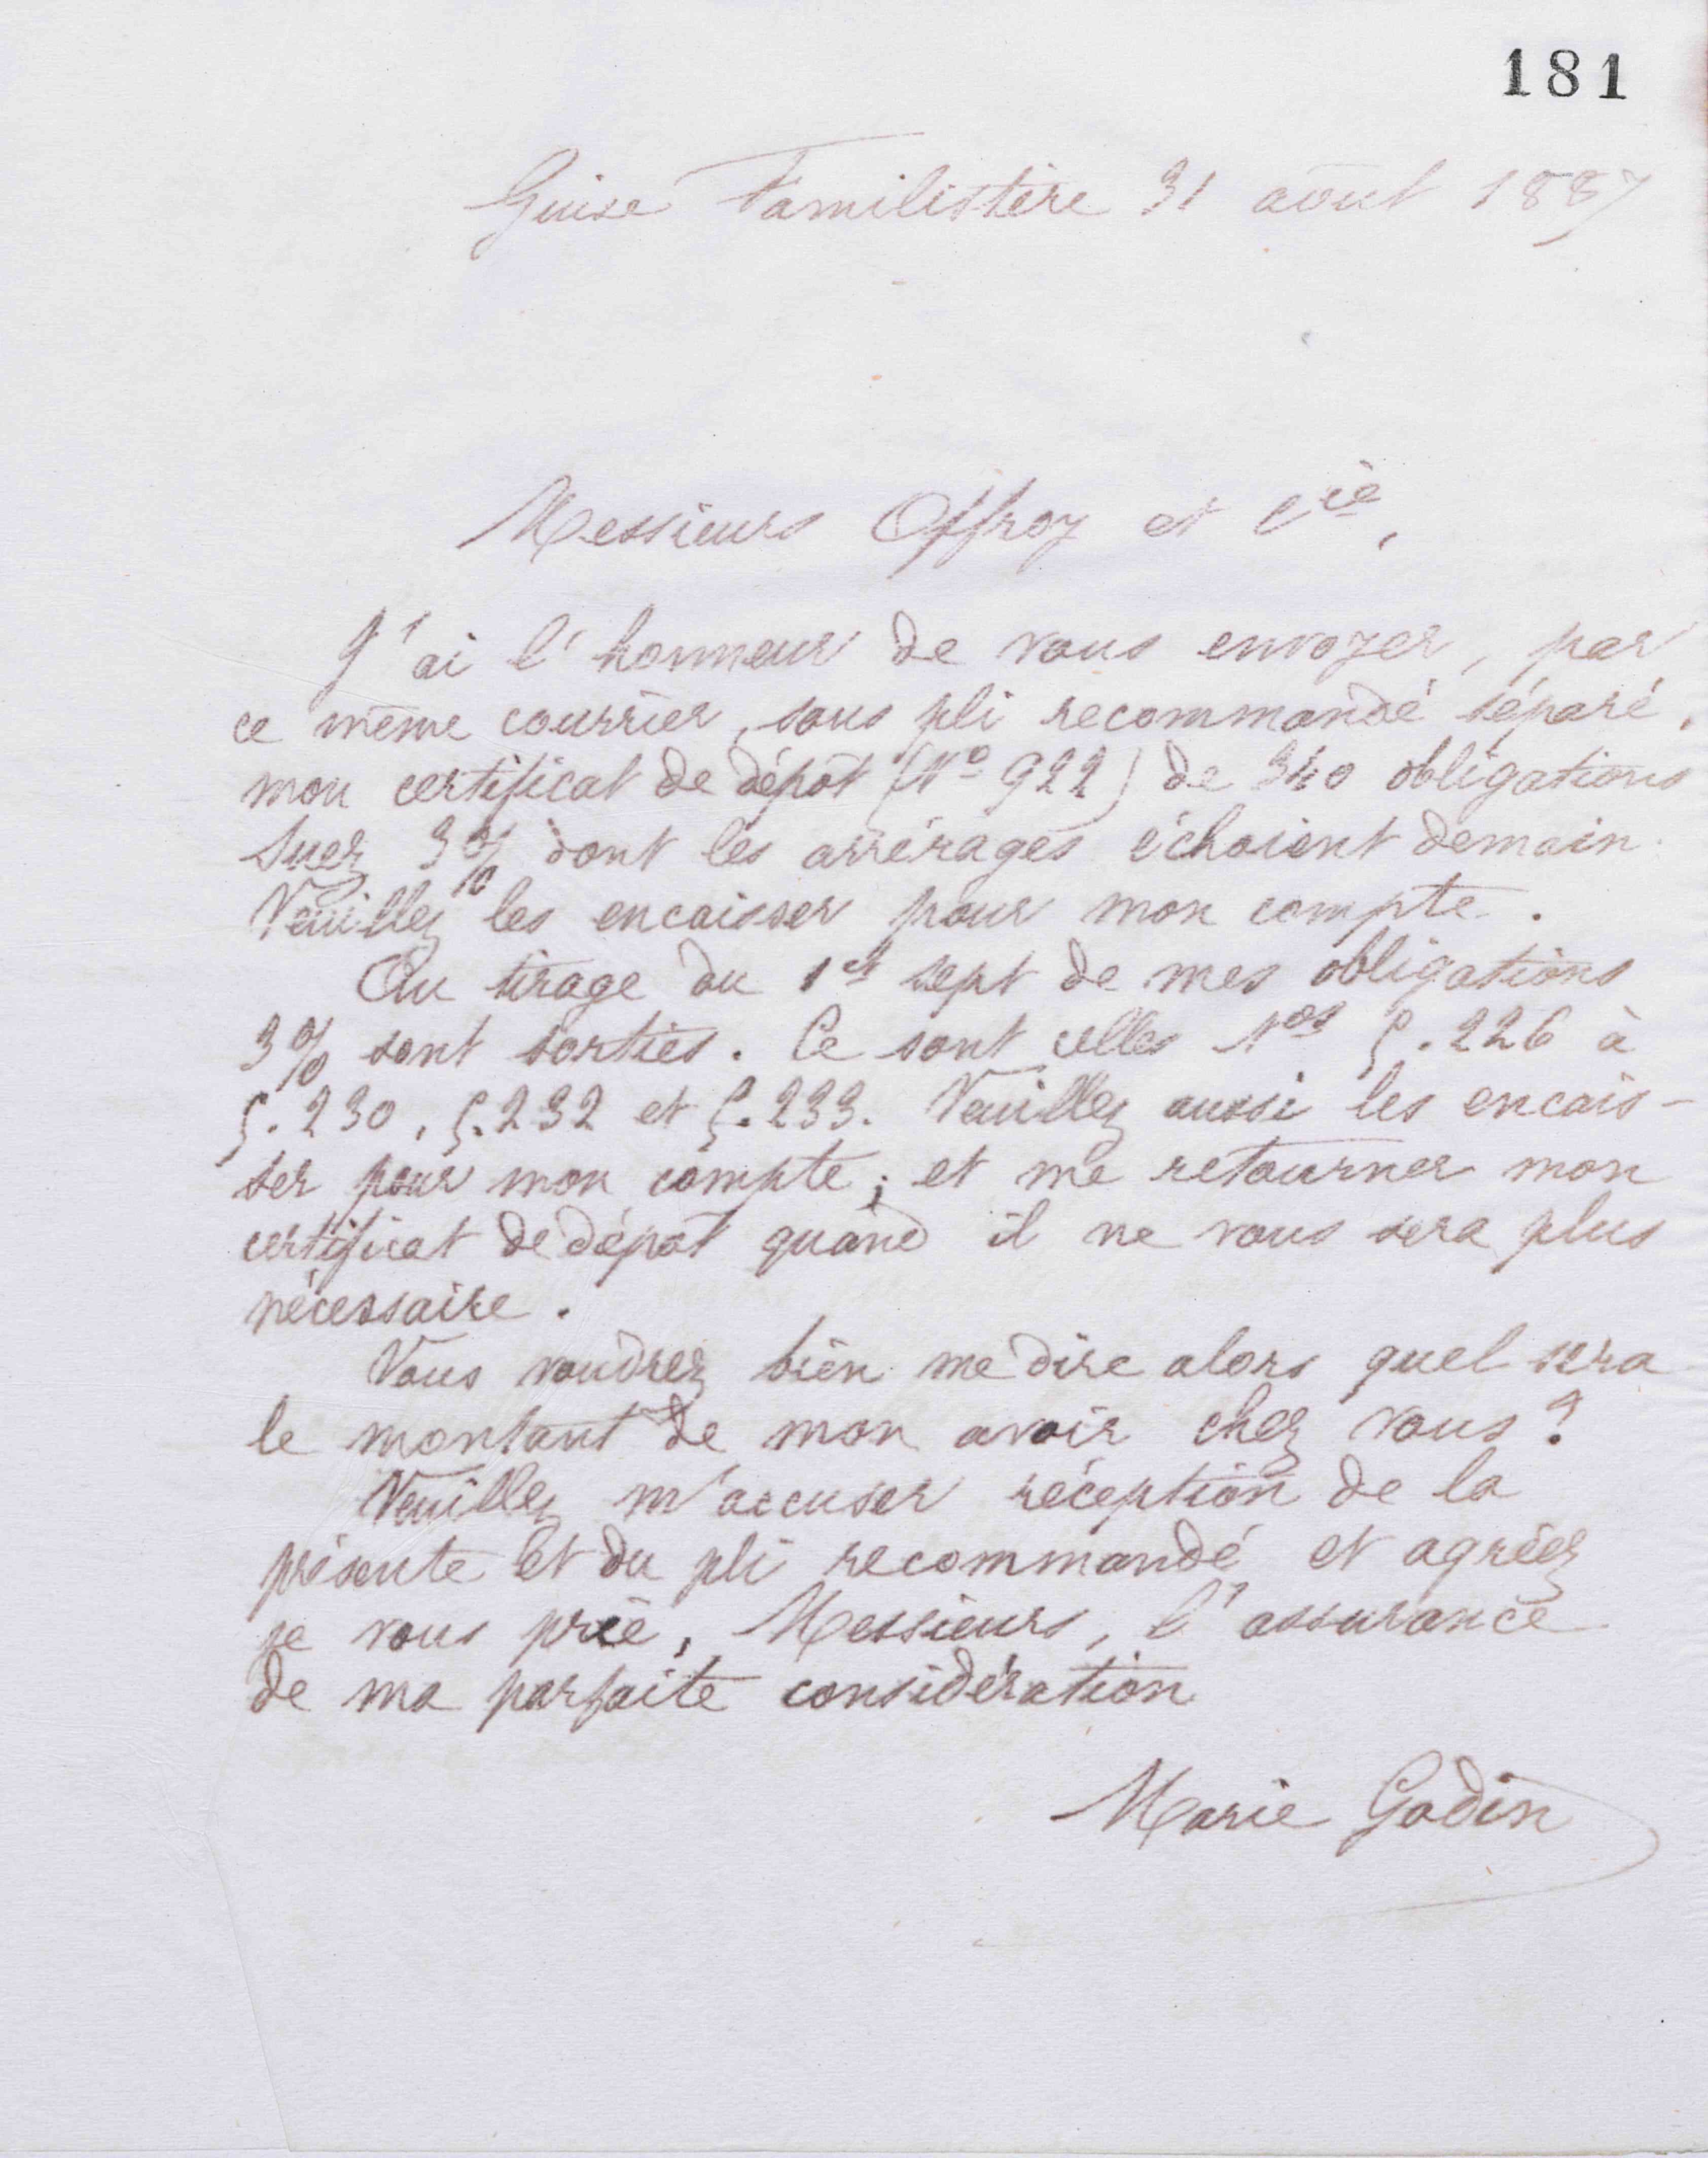 181
Guise Familistère 31 août 1887
Messieurs Offroy et Cie,
J'ai l'honneur de vous envoyer, par
ce même courrier, sous pli recommandé séparé,
mon certificat de dépôt (No 922) de 340 obligations
Suez 3% dont les arrérages échoient demain.
Veuillez les encaisser pour mon compte.
Au tirage du 1er sept de mes obligations
3% sont sorties. Ce sont celles Nos 5.226 à
5.230, 5.232 et 5.233. Veuillez aussi les encais-
ser pour mon compte; et me retourner mon
certificat de dépôt quand il ne vous sera plus
nécessaire.
Vous voudrez bien me dire alors quel sera
le montant de mon avoir chez vous?
Veuillez m'accuser réception de la
présente et du pli recommandé et agréez
je vous prie, Messieurs, l'assurance
de ma parfaite considération
Marie Godin